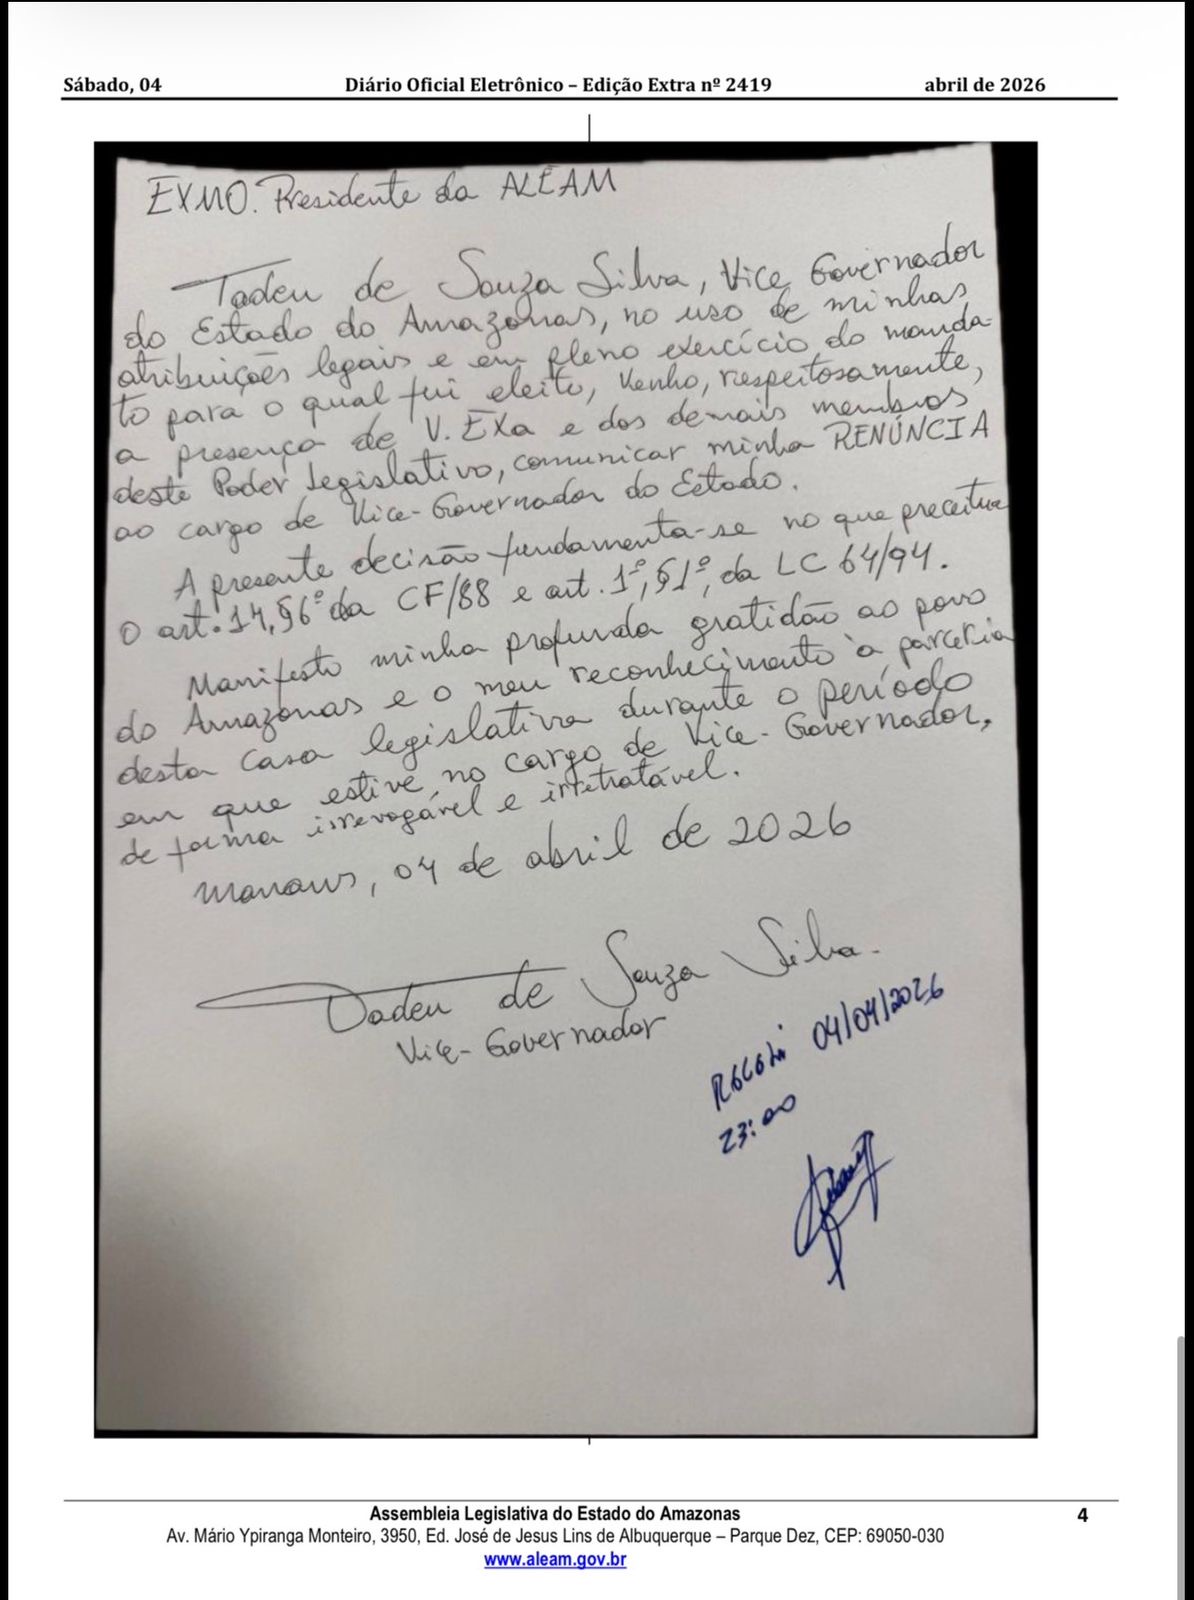 Sábado, 04 Diário Oficial Eletrônico – Edição Extra nº 2419 abril de 2026
EXMO. Presidente da ALEAM
Tadeu de Souza Silva, Vice Governador
do Estado do Amazonas, no uso de minhas
atribuições legais e em pleno exercício do manda-
to para o qual fui eleito, venho, respeitosamente,
a presença de V. EXa e dos demais membros
deste Poder Legislativo, comunicar minha RENÚNCIA
ao cargo de Vice-Governador do Estado.
A presente decisão fundamenta-se no que preceitua
o art. 14, §6º da CF/88 e art. 1º, §1º, da LC 64/94.
Manifesto minha profunda gratidão ao povo
do Amazonas e o meu reconhecimento à parceria
desta Casa legislativa durante o período
em que estive no cargo de Vice-Governador,
de forma irrevogável e irretratável.
Manaus, 04 de abril de 2026
Tadeu de Souza Silva.
Vice-Governador
Recebi 04/04/2026
23:00
Assembleia Legislativa do Estado do Amazonas 4
Av. Mário Ypiranga Monteiro, 3950, Ed. José de Jesus Lins de Albuquerque – Parque Dez, CEP: 69050-030
www.aleam.gov.br